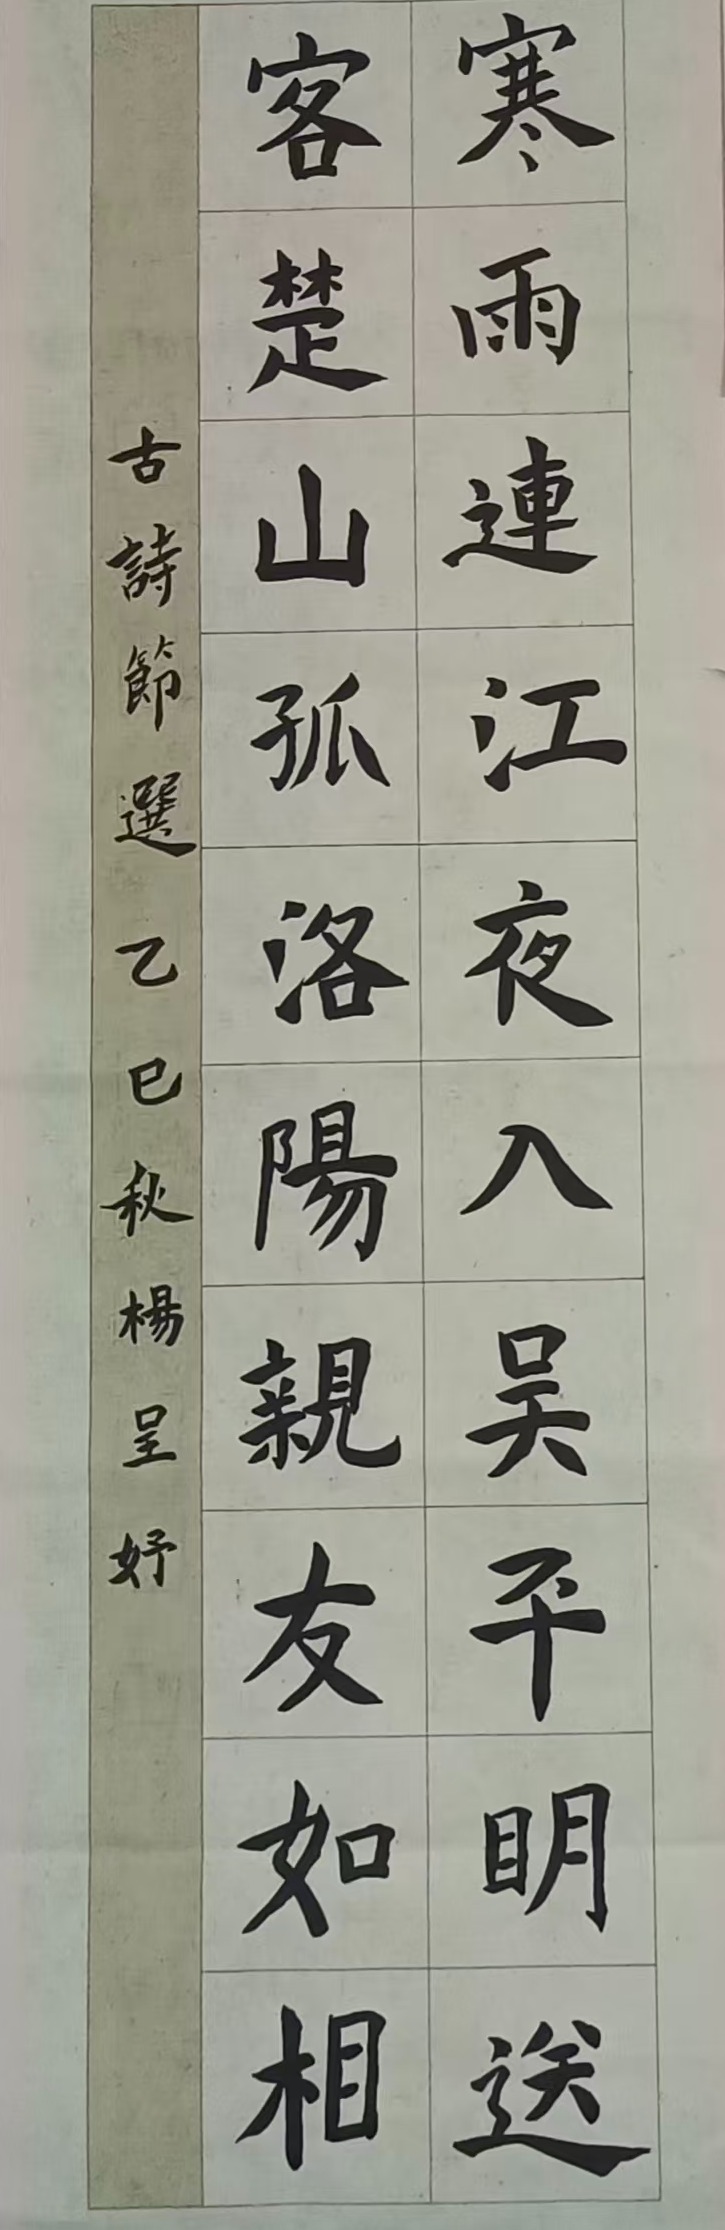 寒雨連江夜入吴平明送
客楚山孤洛陽親友如相
古詩節選乙巳秋楊呈妤